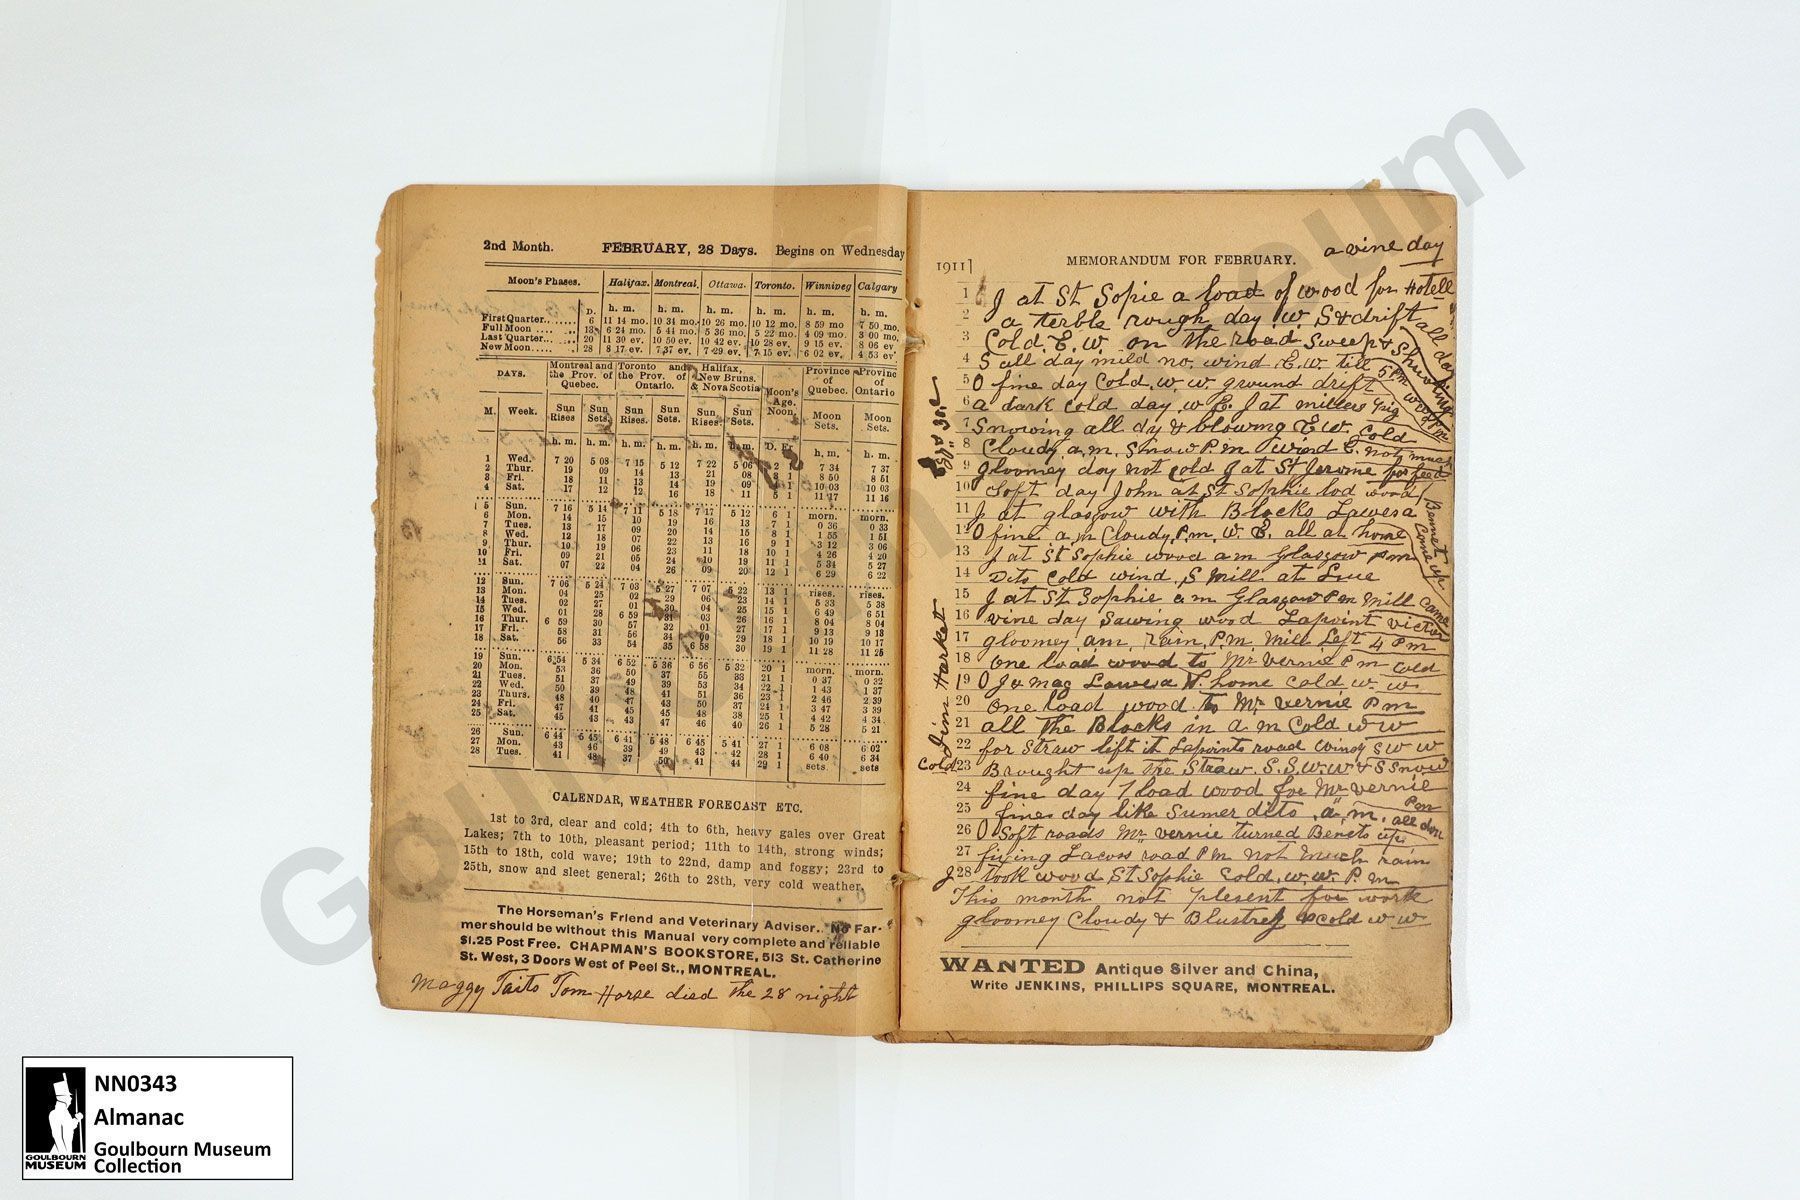 2nd Month. FEBRUARY, 28 Days. Begins on Wednesday
Moon's Phases. Halifax. Montreal. Ottawa. Toronto. Winnipeg Calgary
D. h. m. h. m. h. m. h. m. h. m. h. m.
First Quarter........ 6 11 14 mo. 10 34 mo. 10 26 mo. 10 12 mo. 8 59 mo 7 50 mo.
Full Moon .... ..... 13 6 24 mo. 5 44 mo. 5 36 mo. 5 22 mo. 4 09 mo. 3 00 mo.
Last Quarter........ 20 11 30 ev. 10 50 ev. 10 42 ev. 10 28 ev. 9 15 ev. 8 06 ev
New Moon....... 28 8 17 ev. 7 37 ev. 7 29 ev. 7 15 ev. 6 02 ev. 4 53 ev
DAYS. Montreal and the Prov. of Quebec. Toronto and the Prov. of Ontario. Halifax, New Bruns. & Nova Scotia Moon's Age. Noon. Province of Quebec. Province of Ontario
M. Week. Sun Rises Sun Sets. Sun Rises. Sun Sets. Sun Rises. Sun Sets. Moon Sets. Moon Sets.
h. m. h. m. h. m. h. m. h. m. h. m. D. Fr. h. m. h. m.
1 Wed. 7 20 5 08 7 15 5 12 7 22 5 06 2 1 7 34 7 37
2 Thur. 19 09 14 13 21 08 3 1 8 50 8 50
3 Fri. 18 11 13 14 19 09 4 1 10 03 10 03
4 Sat. 17 12 12 16 18 11 5 1 11 17 11 16
5 Sun. 7 16 5 14 7 11 5 18 7 17 5 12 6 1 morn. morn.
6 Mon. 14 15 10 19 16 13 7 1 0 36 0 33
7 Tues. 13 17 09 20 15 15 8 1 1 55 1 51
8 Wed. 12 18 07 22 13 16 9 1 3 12 3 06
9 Thur. 10 19 06 23 11 18 10 1 4 26 4 20
10 Fri. 09 21 05 24 10 19 11 1 5 34 5 27
11 Sat. 07 22 04 26 09 20 12 1 6 29 6 22
12 Sun. 7 06 5 24 7 03 5 27 7 07 5 22 13 1 rises. rises.
13 Mon. 04 25 02 29 06 23 14 1 5 33 5 38
14 Tues. 02 27 01 30 04 25 15 1 6 49 6 51
15 Wed. 01 28 6 59 31 03 26 16 1 8 04 8 04
16 Thur. 6 59 30 57 32 01 27 17 1 9 13 9 13
17 Fri. 58 31 56 34 00 29 18 1 10 19 10 17
18 Sat. 56 33 54 35 6 58 30 19 1 11 28 11 25
19 Sun. 6 54 5 34 6 52 5 36 6 56 5 32 20 1 morn. morn.
20 Mon. 53 36 50 37 55 33 21 1 0 37 0 32
21 Tues. 51 37 49 39 53 34 22 1 1 43 1 37
22 Wed. 50 39 48 41 51 36 23 1 2 46 2 39
23 Thurs. 48 40 47 43 50 37 24 1 3 47 3 39
24 Fri. 47 41 45 45 48 38 25 1 4 42 4 34
25 Sat. 45 43 43 47 46 40 26 1 5 28 5 21
26 Sun. 6 44 5 45 6 41 5 48 6 45 5 41 27 1 6 08 6 02
27 Mon. 43 46 39 49 43 42 28 1 6 40 6 34
28 Tues. 41 48 37 50 41 44 29 1 sets. sets
CALENDAR, WEATHER FORECAST ETC.
1st to 3rd, clear and cold; 4th to 6th, heavy gales over Great
Lakes; 7th to 10th, pleasant period; 11th to 14th, strong winds;
15th to 18th, cold wave; 19th to 22nd, damp and foggy; 23rd to
25th, snow and sleet general; 26th to 28th, very cold weather.
The Horseman's Friend and Veterinary Adviser.. No Far-
mer should be without this Manual very complete and reliable
$1.25 Post Free. CHAPMAN'S BOOKSTORE, 513 St. Catherine
St. West, 3 Doors West of Peel St., MONTREAL.
Maggy Taits Tom Horse died the 28 night
a vine day
1911] MEMORANDUM FOR FEBRUARY.
1 J at St Sofie a load of wood for Hotell
2 a terble rough day w S & drift all day
3 Cold E. W. on the road Sweep & Shuving
4 S all day mild no wind E. W. till 5 PM
5 O fine day Cold w w ground drift
6 a dark cold day w E. J at millers 4 pig
7 Snowing all dy & blowing E W. Cold
8 Cloudy a.m. Snow P.m wind E. not much
9 gloomey day not cold J at St Jerome for feed
10 Soft day John at St Sophie lod wood
11 J at glasgow with Blocks Lawesa
12 O fine a.m Cloudy P.m. W. E. all at home
Bennet Come up
13 J at St Sophie wood a m Glasgow P m
14 Dito Cold wind S Mill at Lue
15 J at St Sophie a m Glasgow P m Mill Came
16 vine day Sawing wood Lapoint victor
17 gloomey am. rain P.m. Mill Left 4 P m
18 One load wood to Mr Vernie P m Cold
19 O J & Mag Lawesa N. home Cold w. w
20 One load wood to Mr vernie P m
21 all the Blocks in a m Cold w w
22 for Straw lift it Lapoints road windy S W W
Cold 23 Brought up the Straw. S. S. W. W & S Snow
24 fine day 1 load wood for Mr Vernie
25 fines day like Sumer dito a. m. all don P m
26 O Soft roads Mr vernie turned Benets up
27 fixing Lacoss road P m not much rain
J 28 took wood St Sophie Cold. w. w. P. m
This month not plesent for work
gloomey Cloudy & Blustrey & cold w w
Jim Harket
WANTED Antique Silver and China,
Write JENKINS, PHILLIPS SQUARE, MONTREAL.
Goulbourn Museum
NN0343
Almanac
Goulbourn Museum
Collection
GOULBOURN
MUSEUM